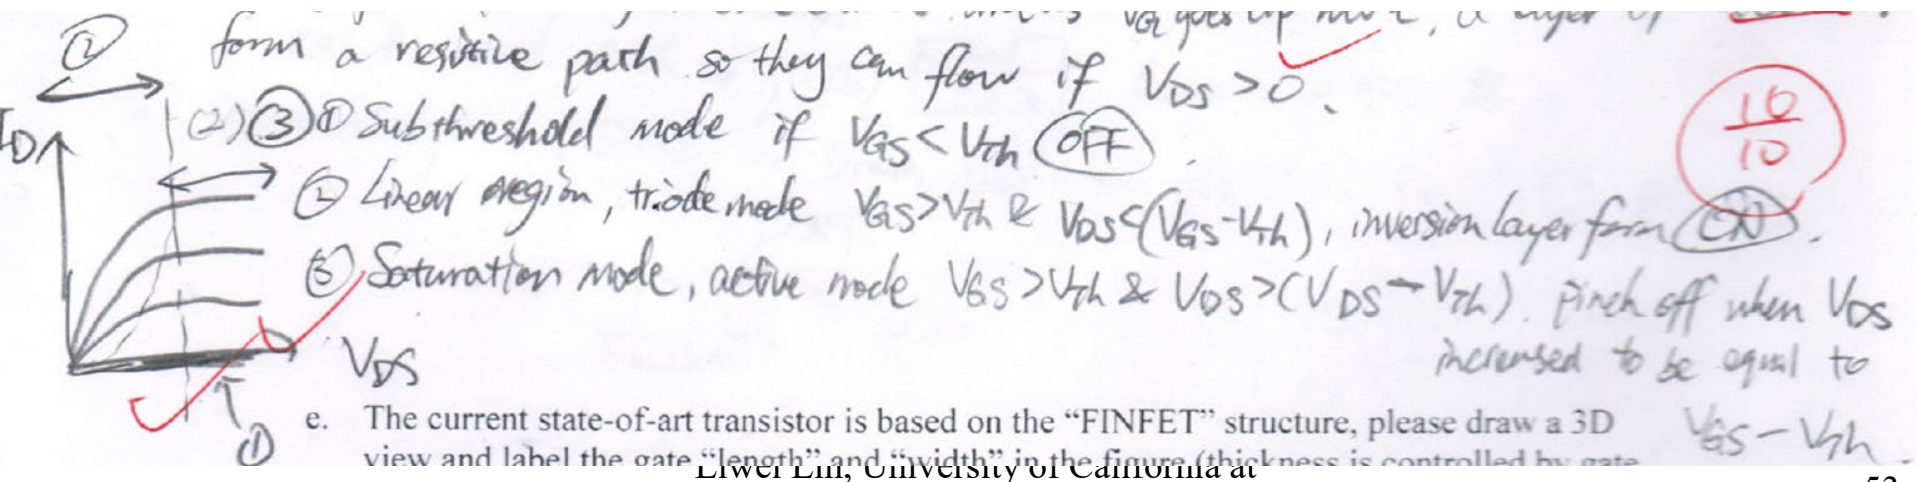 V_G goes up more, a layer of
② form a resistive path so they can flow if V_DS > 0.
10/10
I_D
(2) ③ ① Subthreshold mode if V_GS < V_th OFF.
② Linear region, triode mode V_GS > V_th & V_DS < (V_GS - V_th), inversion layer form ON.
③ Saturation mode, active mode V_GS > V_th & V_DS > (V_DS - V_th). pinch off when V_DS
increased to be equal to
V_GS - V_th.
V_DS
①
e. The current state-of-art transistor is based on the “FINFET” structure, please draw a 3D
view and label the gate “length” and “width” in the figure (thickness is controlled by gate
Liwei Lin, University of California at
52